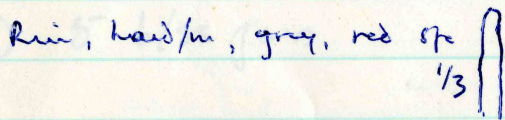 Rim, hard/m, grey, red sfc
1/3